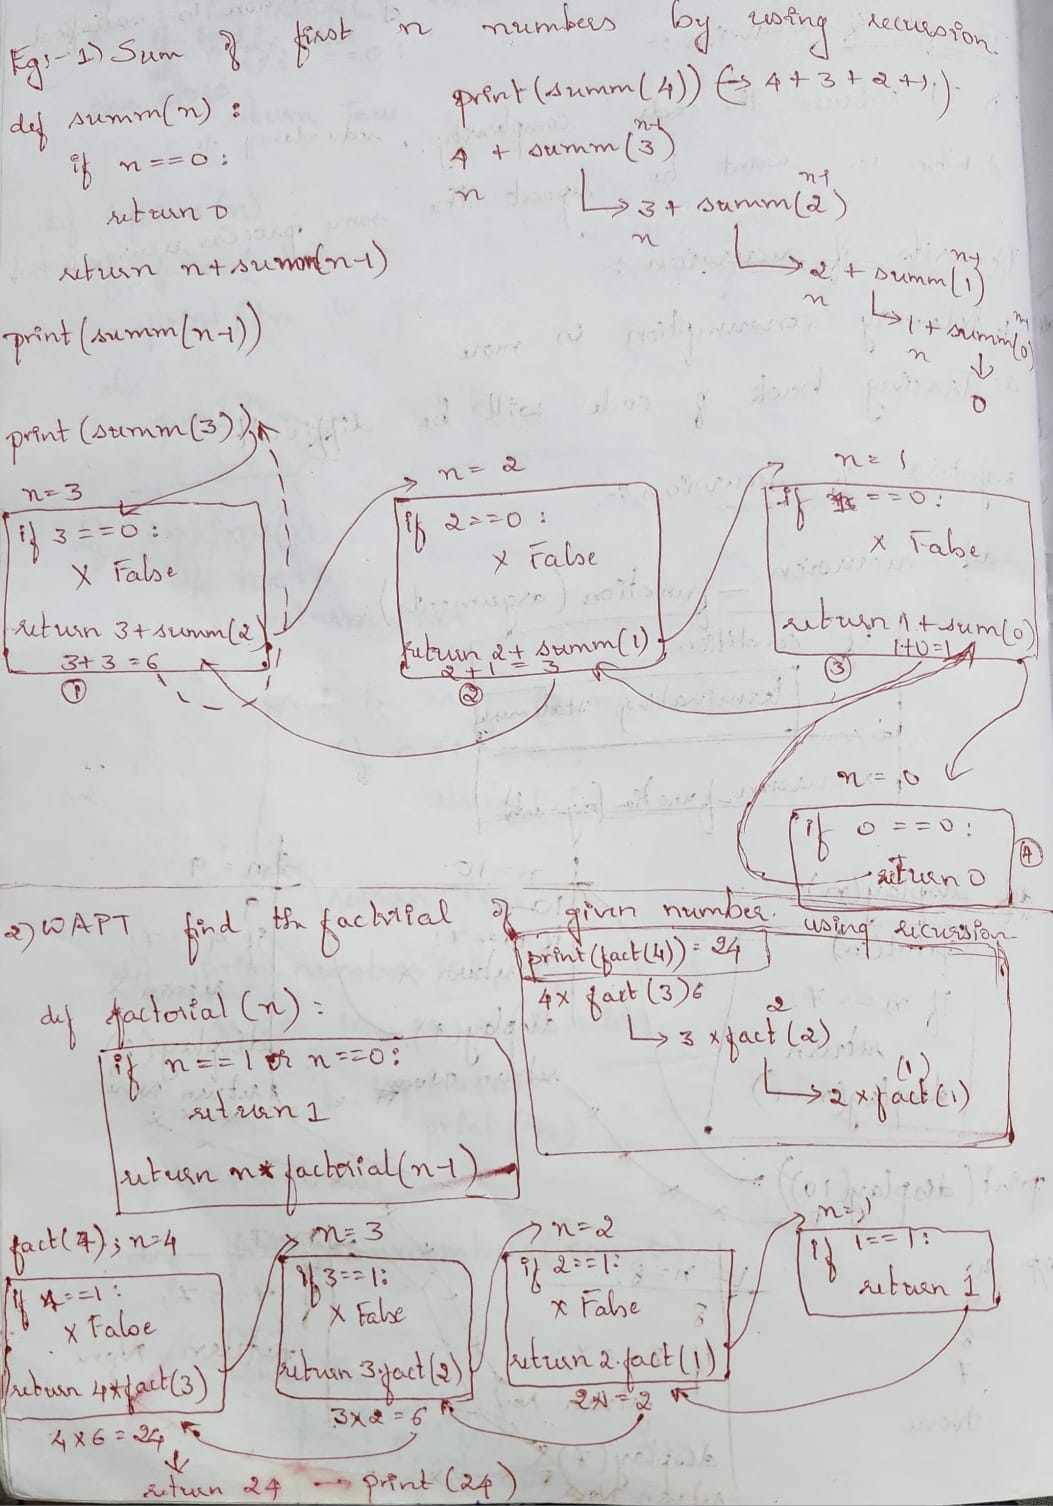 Eg:- 1) Sum of first n numbers by using recursion.
def summ(n) :
if n==0 :
return 0
return n+summ(n-1)
print(summ(n-1))
print(summ(4)) (→ 4+3+2+1.)
n-1
4 + summ(3)
n
n-1
3 + summ(2)
n
n-1
2 + summ(1)
n
n-1
1 + summ(0)
n
0
print(summ(3))
n=3
if 3==0 :
x False
return 3+summ(2)
3+3=6
①
n= 2
if 2==0 :
x False
return 2+ summ(1)
2+1 = 3
②
n= 1
if 1 ==0 :
x False
return 1+sum(0)
1+0=1
③
n= 0
if 0 ==0 :
return 0
④
2) WAPT find the factorial of given number. using recursion
def factorial(n) :
if n==1 or n==0:
return 1
return n*factorial(n-1)
print(fact(4))= 24
4x fact(3)6
2
3 x fact(2)
(1)
2 x fact(1)
fact(4); n=4
if 4==1 :
x False
return 4*fact(3)
4x6=24
return 24 → print(24)
n=3
if 3==1:
x False
return 3.fact(2)
3x2=6
n=2
if 2==1:
x False
return 2.fact(1)
2x1=2
n=1
if 1==1:
return 1